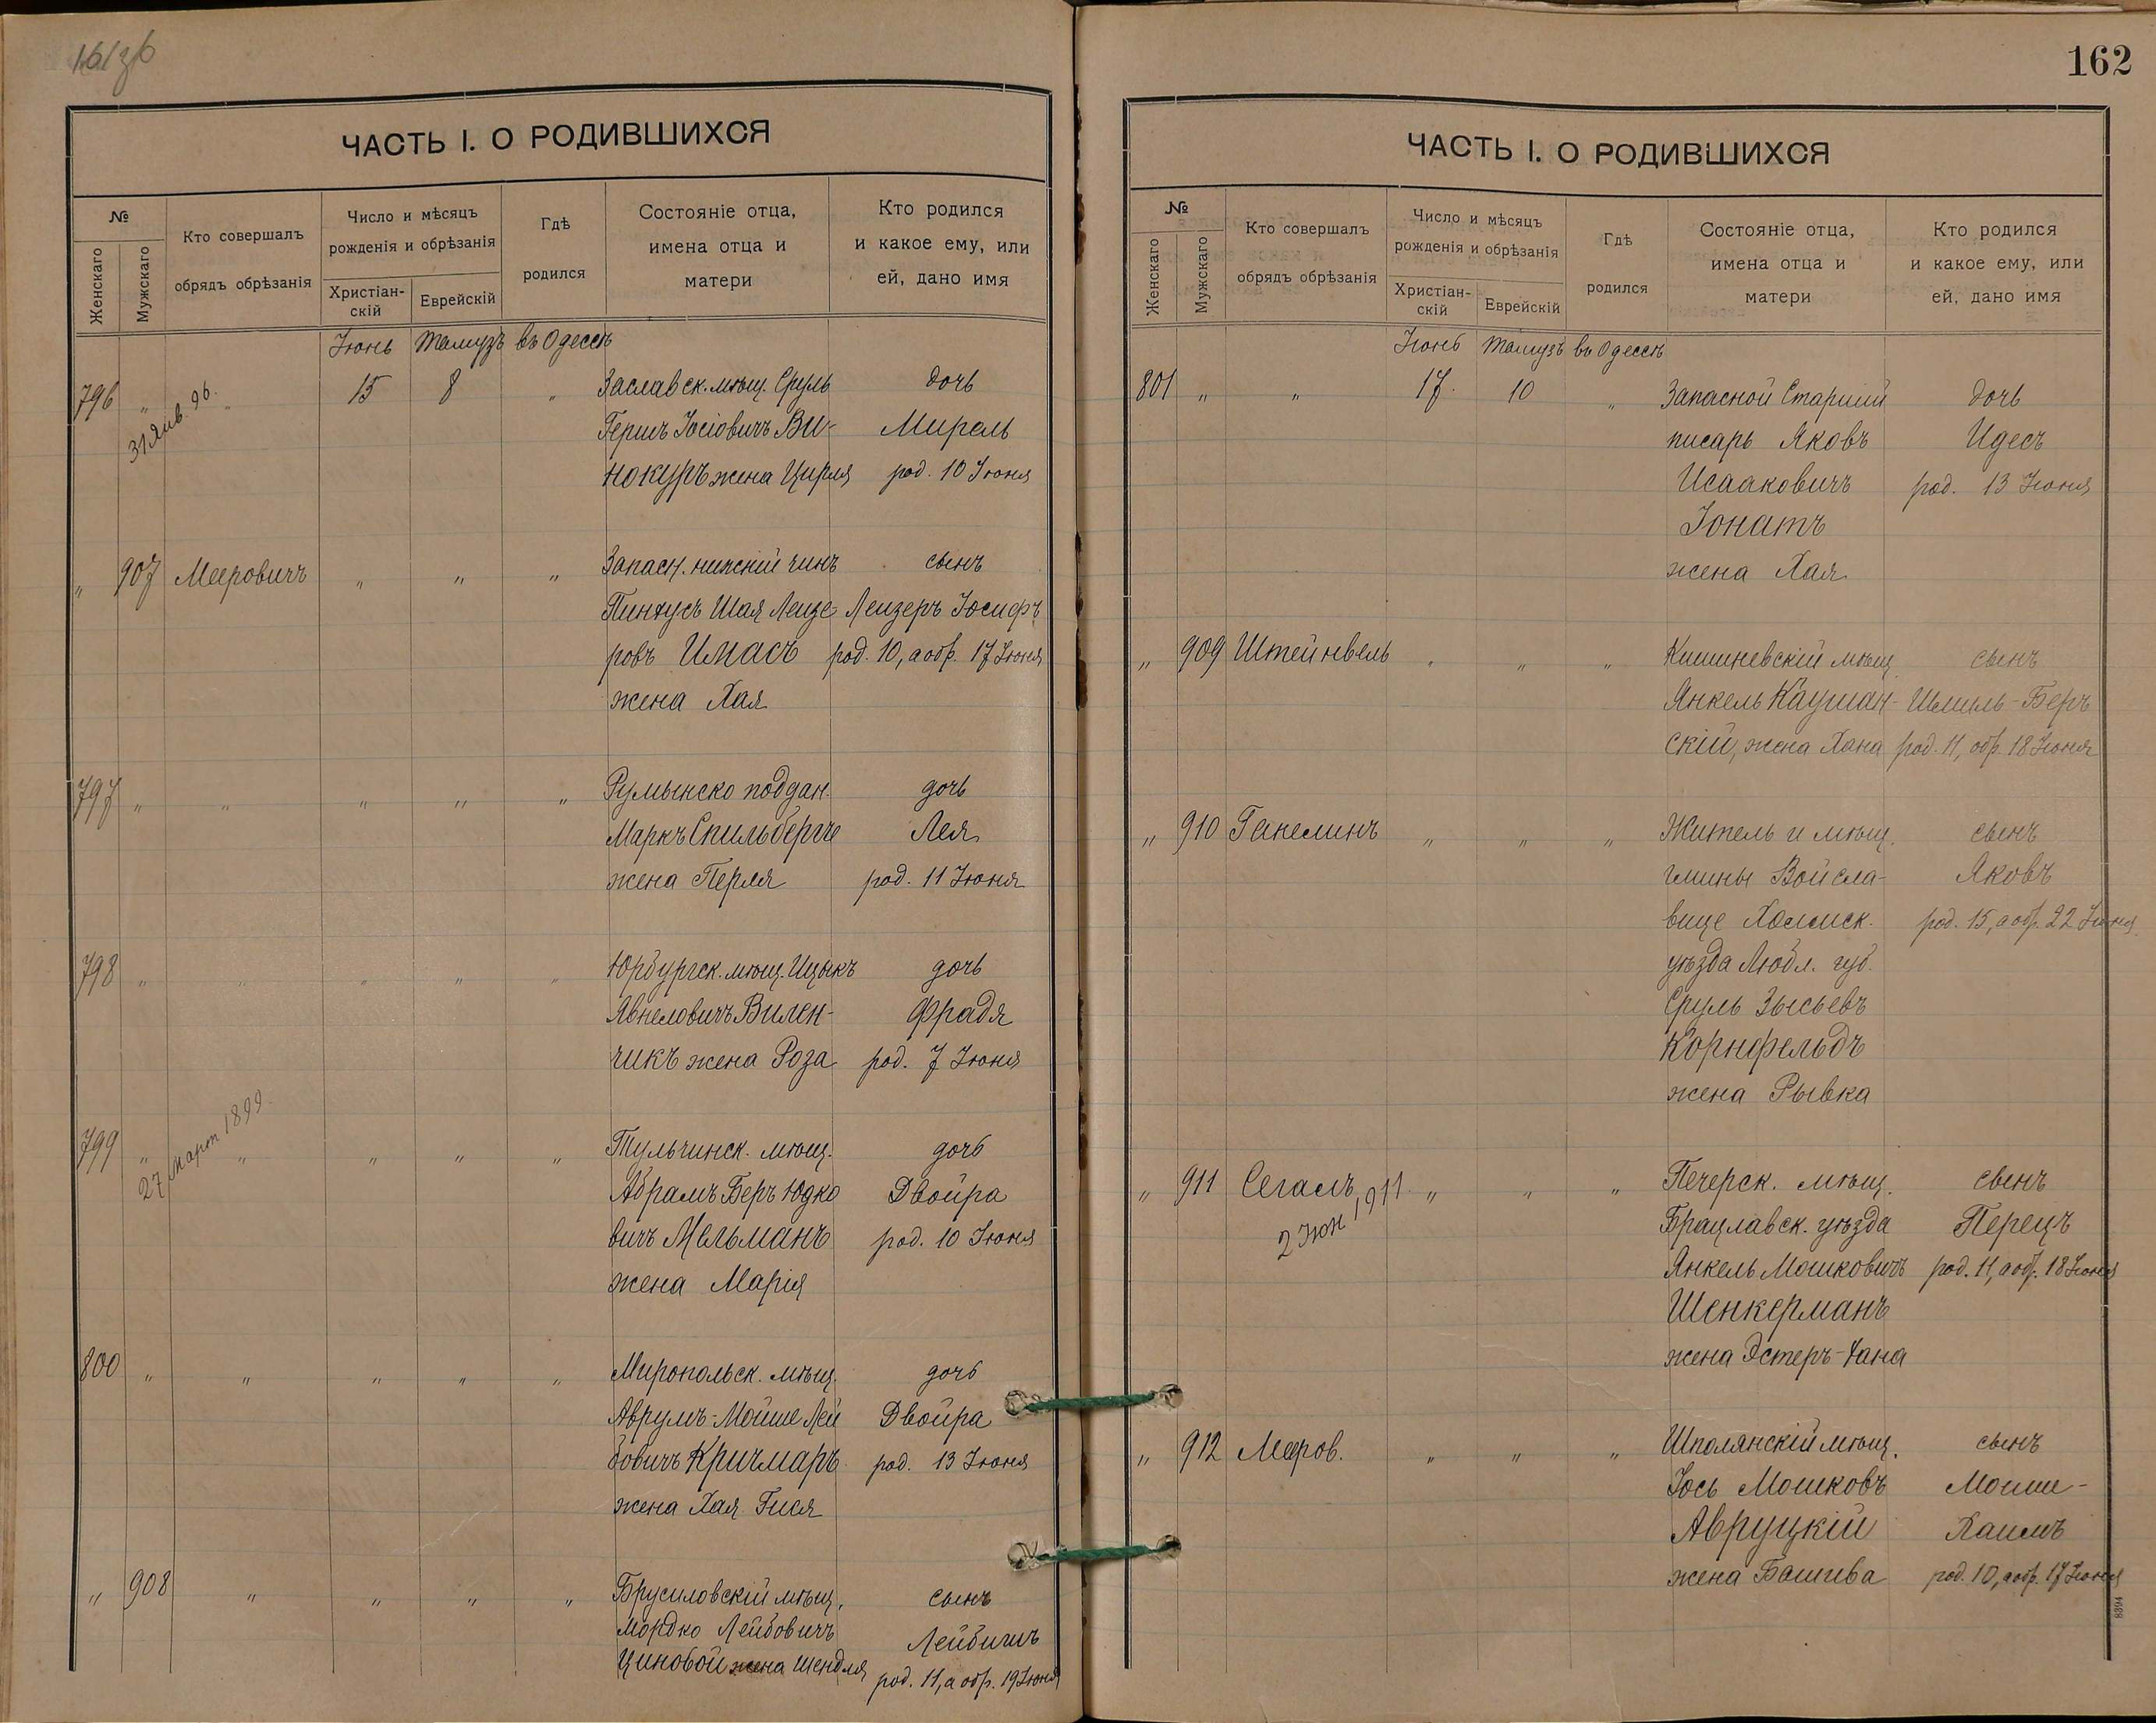 ЧАСТЬ I. О РОДИВШИХСЯ
№
Женскаго
Мужскаго
Кто совершалъ
обрядъ обрѣзанія
Число и мѣсяцъ
рожденія и обрѣзанія
Христіан-
скій
Еврейскій
Гдѣ
родился
Состояніе отца,
имена отца и
матери
Кто родился
и какое ему, или
ей, дано имя
Іюнь Тамузъ въ Одессѣ
796 „ „ 15 8 „ Заславск. мѣщ. Сруль дочь
31 Янв. 96.
Гершъ Іосіовичъ Ви- Мирель
нокуръ жена Цирля род. 10 Іюня
„ 907 Мееровичъ „ „ „ Запасн. нижній чинъ сынъ
Пинхусъ Шая Лейзе Лейзеръ Іосифъ
ровъ Имасъ род. 10, а обр. 17 Іюня
жена Хая
797 „ „ „ „ „ Румынско поддан. дочь
Маркъ Спильбергъ Лея
жена Перля род. 11 Іюня
798 „ „ „ „ „ Юрбургск. мѣщ. Ицыкъ дочь
Явнеловичъ Вилен- Фрадя
чикъ жена Роза род. 7 Іюня
799 „ „ „ „ „ Тульчинск. мѣщ. дочь
27 Март 1899.
Абрамъ Беръ Юдко Двойра
вичъ Мельманъ род. 10 Іюня
жена Марія
800 „ „ „ „ „ Миропольск. мѣщ. дочь
Аврумъ-Мойше Лей Двойра
бовичъ Кричмаръ род. 13 Іюня
жена Хая Гися
„ 908 „ „ „ „ Брусиловскій мѣщ. сынъ
Мордко Лейбовичъ Лейбишъ
Циновой жена Шендля род. 11, а обр. 19 Іюня
162
ЧАСТЬ I. О РОДИВШИХСЯ
№
Женскаго
Мужскаго
Кто совершалъ
обрядъ обрѣзанія
Число и мѣсяцъ
рожденія и обрѣзанія
Христіан-
скій
Еврейскій
Гдѣ
родился
Состояніе отца,
имена отца и
матери
Кто родился
и какое ему, или
ей, дано имя
Іюнь Тамузъ въ Одессѣ
801 „ „ 17. 10 „ Запасной Старшій дочь
писарь Яковъ Идесъ
Исааковичъ род. 13 Іюня
Іонатъ
жена Хая
„ 909 Штейнвель „ „ „ Кишиневскій мѣщ. сынъ
Янкель Каушан- Шмиль-Беръ
скій, жена Хана род. 11, обр. 18 Іюня
„ 910 Ганелинъ „ „ „ Житель и мѣщ. сынъ
гмины Войсла- Яковъ
вице Холмск. род. 15, а обр. 22 Іюня
уѣзда Любл. губ.
Сруль Зысьевъ
Корнфельдъ
жена Рывка
„ 911 Сегалъ „ „ „ Печерск. мѣщ. сынъ
2 Іюн 1911
Брацлавск. уѣзда Перецъ
Янкель Мошковичъ род. 11, а обр. 18 Іюня
Шенкерманъ
жена Эстеръ-Хана
„ 912 Меров. „ „ „ Шполянскій мѣщ. сынъ
Іось Мошковъ Моише-
Авруцкій Хаимъ
жена Башива род. 10, а обр. 17 Іюня
8394